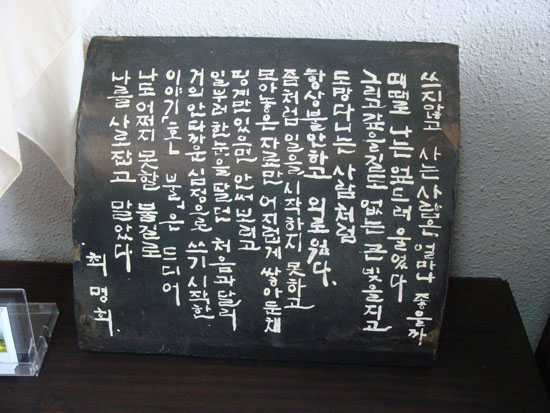 쓰지 않고 사는 사람은 얼마나 좋을까.
때때로 나는 엎드려 울었다
그리고 갚을 길도 없는 큰 빚을 지고
도망다니는 사람처럼
항상 불안하고 외로웠다.
좀처럼 일을 시작하지 못하고
모아놓은 자료만 어지럽게 쌓아둔채
핑계만 있으면 안써보려고
일부러 한눈을 팔던 처음과 달리
거의 안타까운 심정으로 쓰기 시작한
이야기 「혼불」은 드디어
나도 어쩌지 못할 불길로
나를 사로잡고 말았다
최명희.